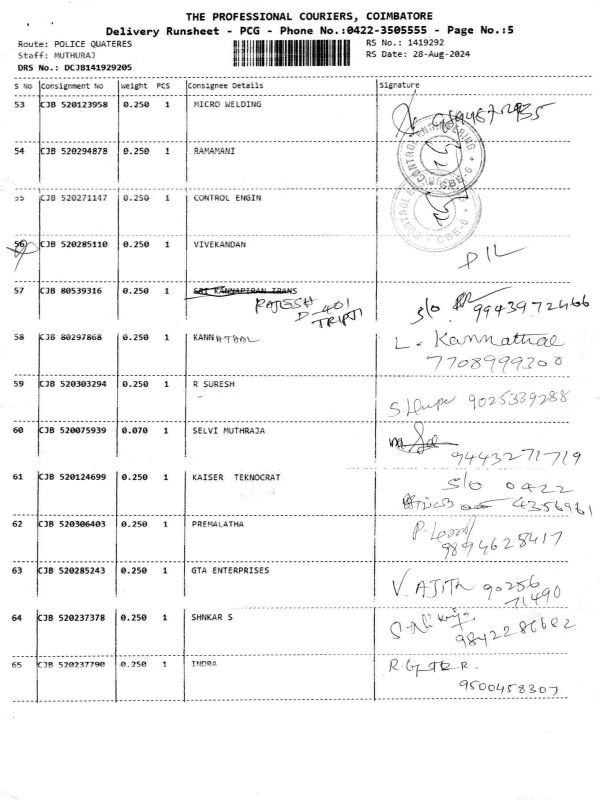 THE PROFESSIONAL COURIERS, COIMBATORE
Delivery Runsheet - PCG - Phone No.:0422-3505555 - Page No.:5
Route: POLICE QUATERES RS No.: 1419292
Staff: MUTHURAJ RS Date: 28-Aug-2024
DRS No.: DCJB141929205
S No Consignment No Weight PCS Consignee Details Signature
53 CJB 520123958 0.250 1 MICRO WELDING
54 CJB 520294878 0.250 1 RAMAMANI
CONTROL ENGINEERING
CBE-6
55 CJB 520271147 0.250 1 CONTROL ENGIN
CBE-6
56 CJB 520285110 0.250 1 VIVEKANDAN
D/L
57 CJB 80539316 0.250 1 SRI KANNAPIRAN TRANS
RAJESH S/o 9943972466
D-401
TRIPTI
58 CJB 80297868 0.250 1 KANNATHAL L. Kannathal
7708999300
59 CJB 520303294 0.250 1 R SURESH
9025339288
60 CJB 520075939 0.070 1 SELVI MUTHRAJA
9443271719
61 CJB 520124699 0.250 1 KAISER TEKNOCRAT S/o 0422
4356961
62 CJB 520306403 0.250 1 PREMALATHA
9894628417
63 CJB 520285243 0.250 1 GTA ENTERPRISES V. AJITH 90256
71490
64 CJB 520237378 0.250 1 SHNKAR S
9842286682
65 CJB 520237790 0.250 1 INDRA
9500458307